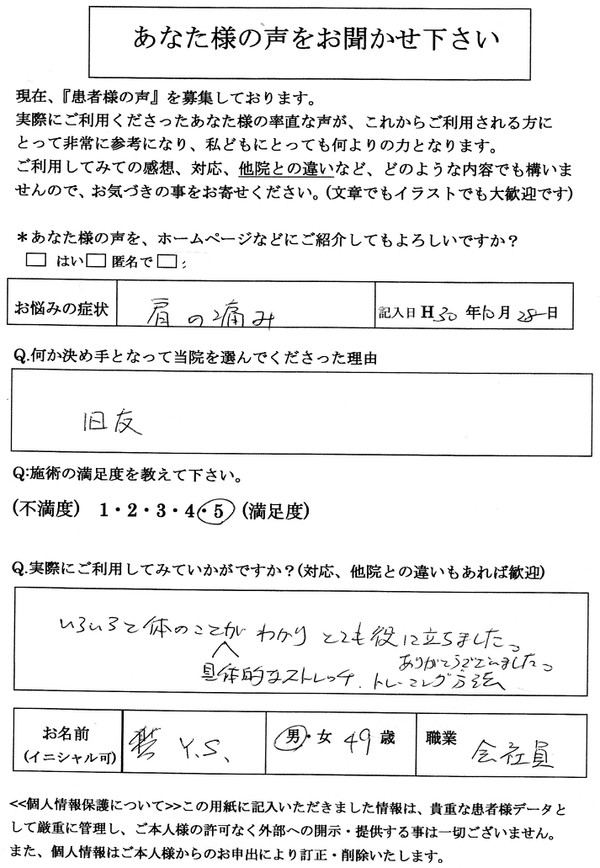 あなた様の声をお聞かせ下さい
現在、『患者様の声』を募集しております。
実際にご利用くださったあなた様の率直な声が、これからご利用される方に
とって非常に参考になり、私どもにとっても何よりの力となります。
ご利用してみての感想、対応、他院との違いなど、どのような内容でも構いま
せんので、お気づきの事をお寄せください。(文章でもイラストでも大歓迎です)
＊あなた様の声を、ホームページなどにご紹介してもよろしいですか？
□ はい □ 匿名で □ ;
お悩みの症状 肩の痛み 記入日 H 30 年 10 月 28 日
Q.何か決め手となって当院を選んでくださった理由
旧友
Q:施術の満足度を教えて下さい。
(不満度) 1・2・3・4・5 (満足度)
Q.実際にご利用してみていかがですか？(対応、他院との違いもあれば歓迎)
いろいろと体のことがわかりとても役に立ちました。
ありがとうございました。
具体的なストレッチ、トレーニング方法
お名前 (イニシャル可) Y.S. 男・女 49 歳 職業 会社員
<<個人情報保護について>>この用紙に記入いただきました情報は、貴重な患者様データと
して厳重に管理し、ご本人様の許可なく外部への開示・提供する事は一切ございません。
また、個人情報はご本人様からのお申出により訂正・削除いたします。